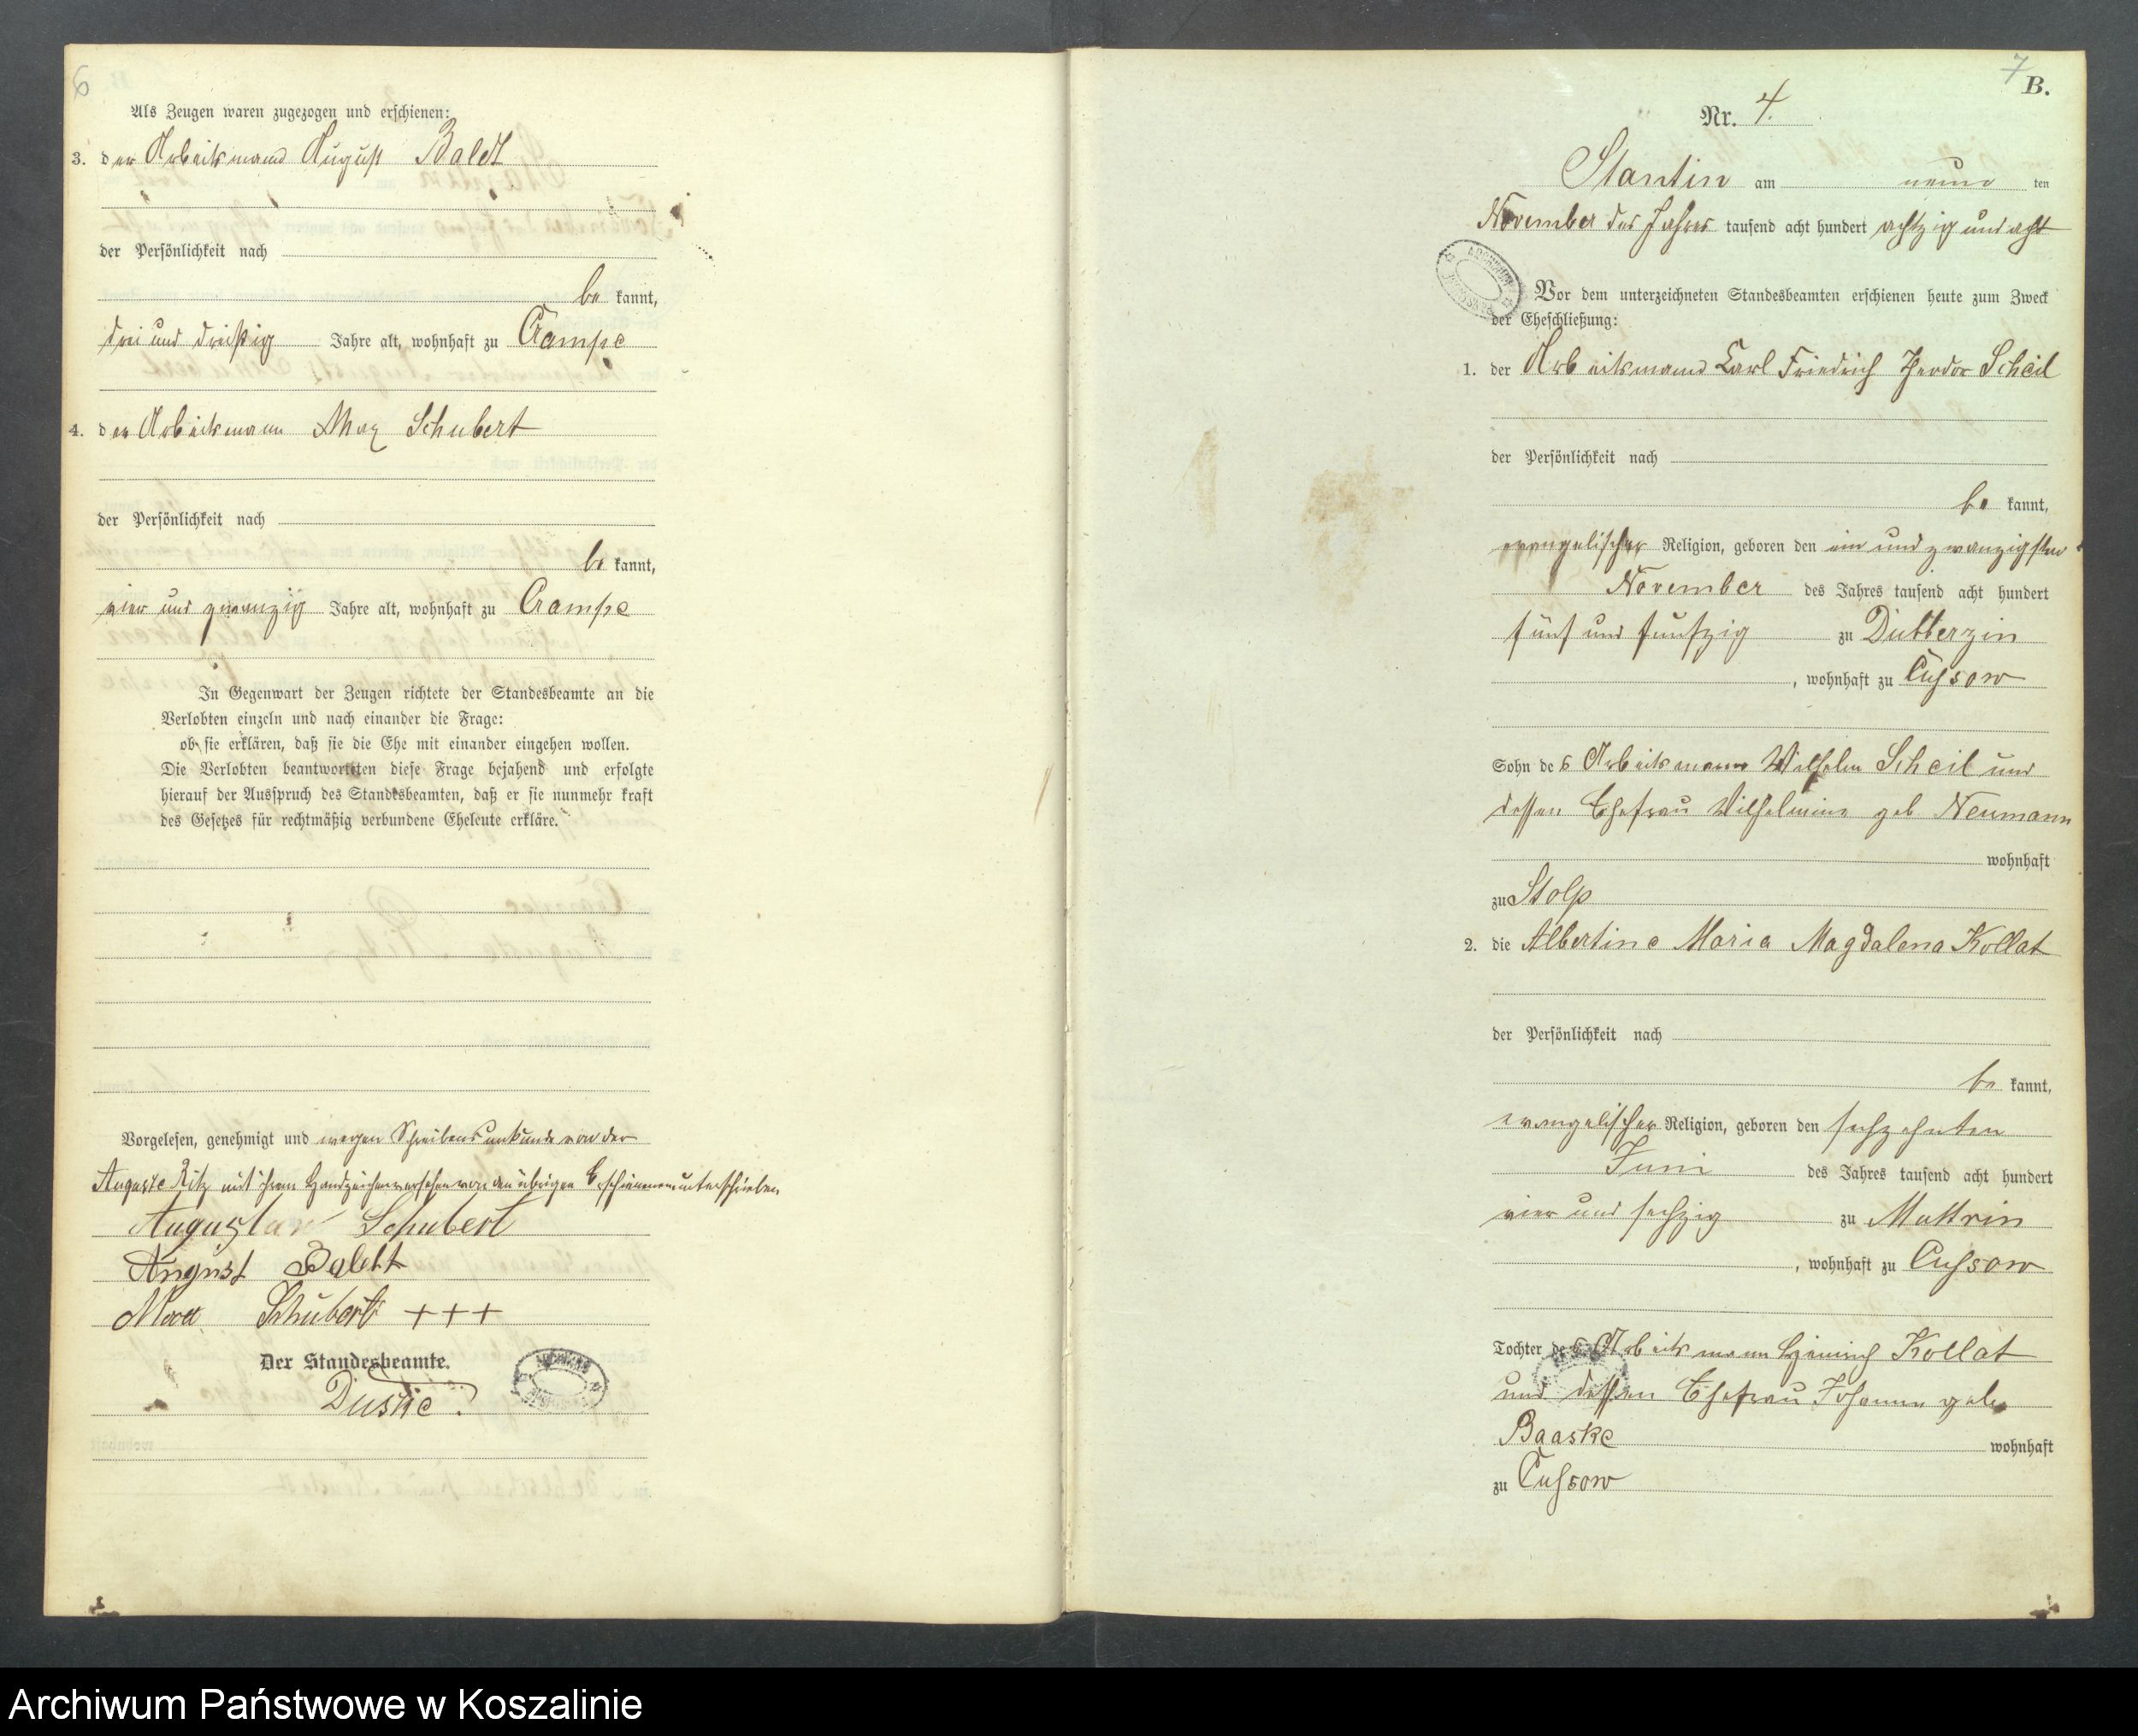 6
Als Zeugen waren zugezogen und erschienen:
3. der Arbeitsmann August Baldt
der Persönlichkeit nach
bekannt,
drei und dreißig Jahre alt, wohnhaft zu Crampe
4. der Arbeitsmann Max Schubert
der Persönlichkeit nach
bekannt,
vier und zwanzig Jahre alt, wohnhaft zu Crampe
In Gegenwart der Zeugen richtete der Standesbeamte an die
Verlobten einzeln und nach einander die Frage:
ob sie erklären, daß sie die Ehe mit einander eingehen wollen.
Die Verlobten beantworteten diese Frage bejahend und erfolgte
hierauf der Ausspruch des Standesbeamten, daß er sie nunmehr kraft
des Gesetzes für rechtmäßig verbundene Eheleute erkläre.
Vorgelesen, genehmigt und wegen Schreibensunkunde von der
Auguste Ritz mit ihrem Handzeichen versehen von den übrigen Erschienenen unterschrieben
Schubert
August Baldt
Max Schubert +++
Der Standesbeamte.
Duske.
7
B.
Nr. 4.
Stantin am neun ten
November des Jahres tausend acht hundert achtzig und acht
Vor dem unterzeichneten Standesbeamten erschienen heute zum Zweck
der Eheschließung:
1. der Arbeitsmann Carl Friedrich Theodor Scheil
der Persönlichkeit nach
bekannt,
evangelischer Religion, geboren den ein und zwanzigsten
November des Jahres tausend acht hundert
fünf und funfzig zu Dübberzin
, wohnhaft zu Cussow
Sohn des Arbeitsmann Wilhelm Scheil und
dessen Ehefrau Wilhelmine geb Neumann
wohnhaft
zu Stolp
2. die Albertine Maria Magdalena Kollat
der Persönlichkeit nach
bekannt,
evangelischer Religion, geboren den sechzehnten
Juni des Jahres tausend acht hundert
vier und sechzig zu Muttrin
, wohnhaft zu Cussow
Tochter des Arbeitsmann Heinrich Kollat
und dessen Ehefrau Johanne geb
Baaske wohnhaft
zu Cussow
Archiwum Państwowe w Koszalinie